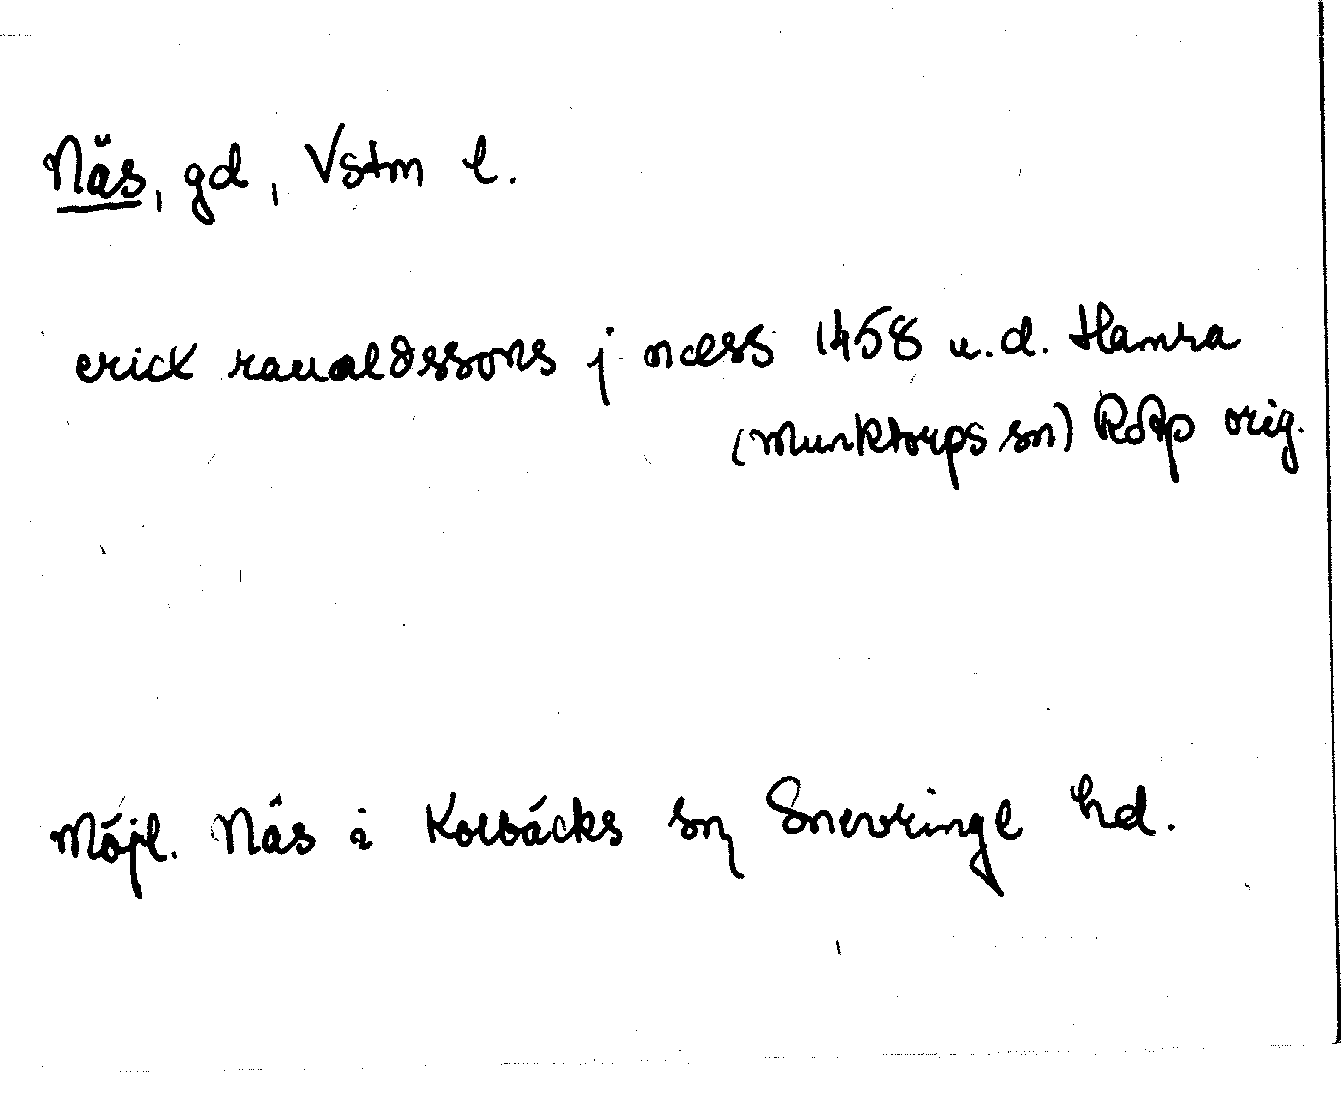 Näs, gd, Vstm l.
erick raualdssons j næss 1458 u.d. Hamra
(Munktorps sn) RAp orig.
Möjl. Näs i Kolbäcks sn Snevringe hd.